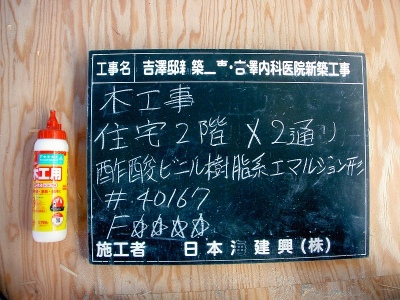 木工用
工事名 吉澤邸新築工事・吉澤内科医院新築工事
木工事
住宅2階 X2通り
酢酸ビニル樹脂系エマルション形
# 40167
F☆☆☆☆
施工者 日本海建興(株)